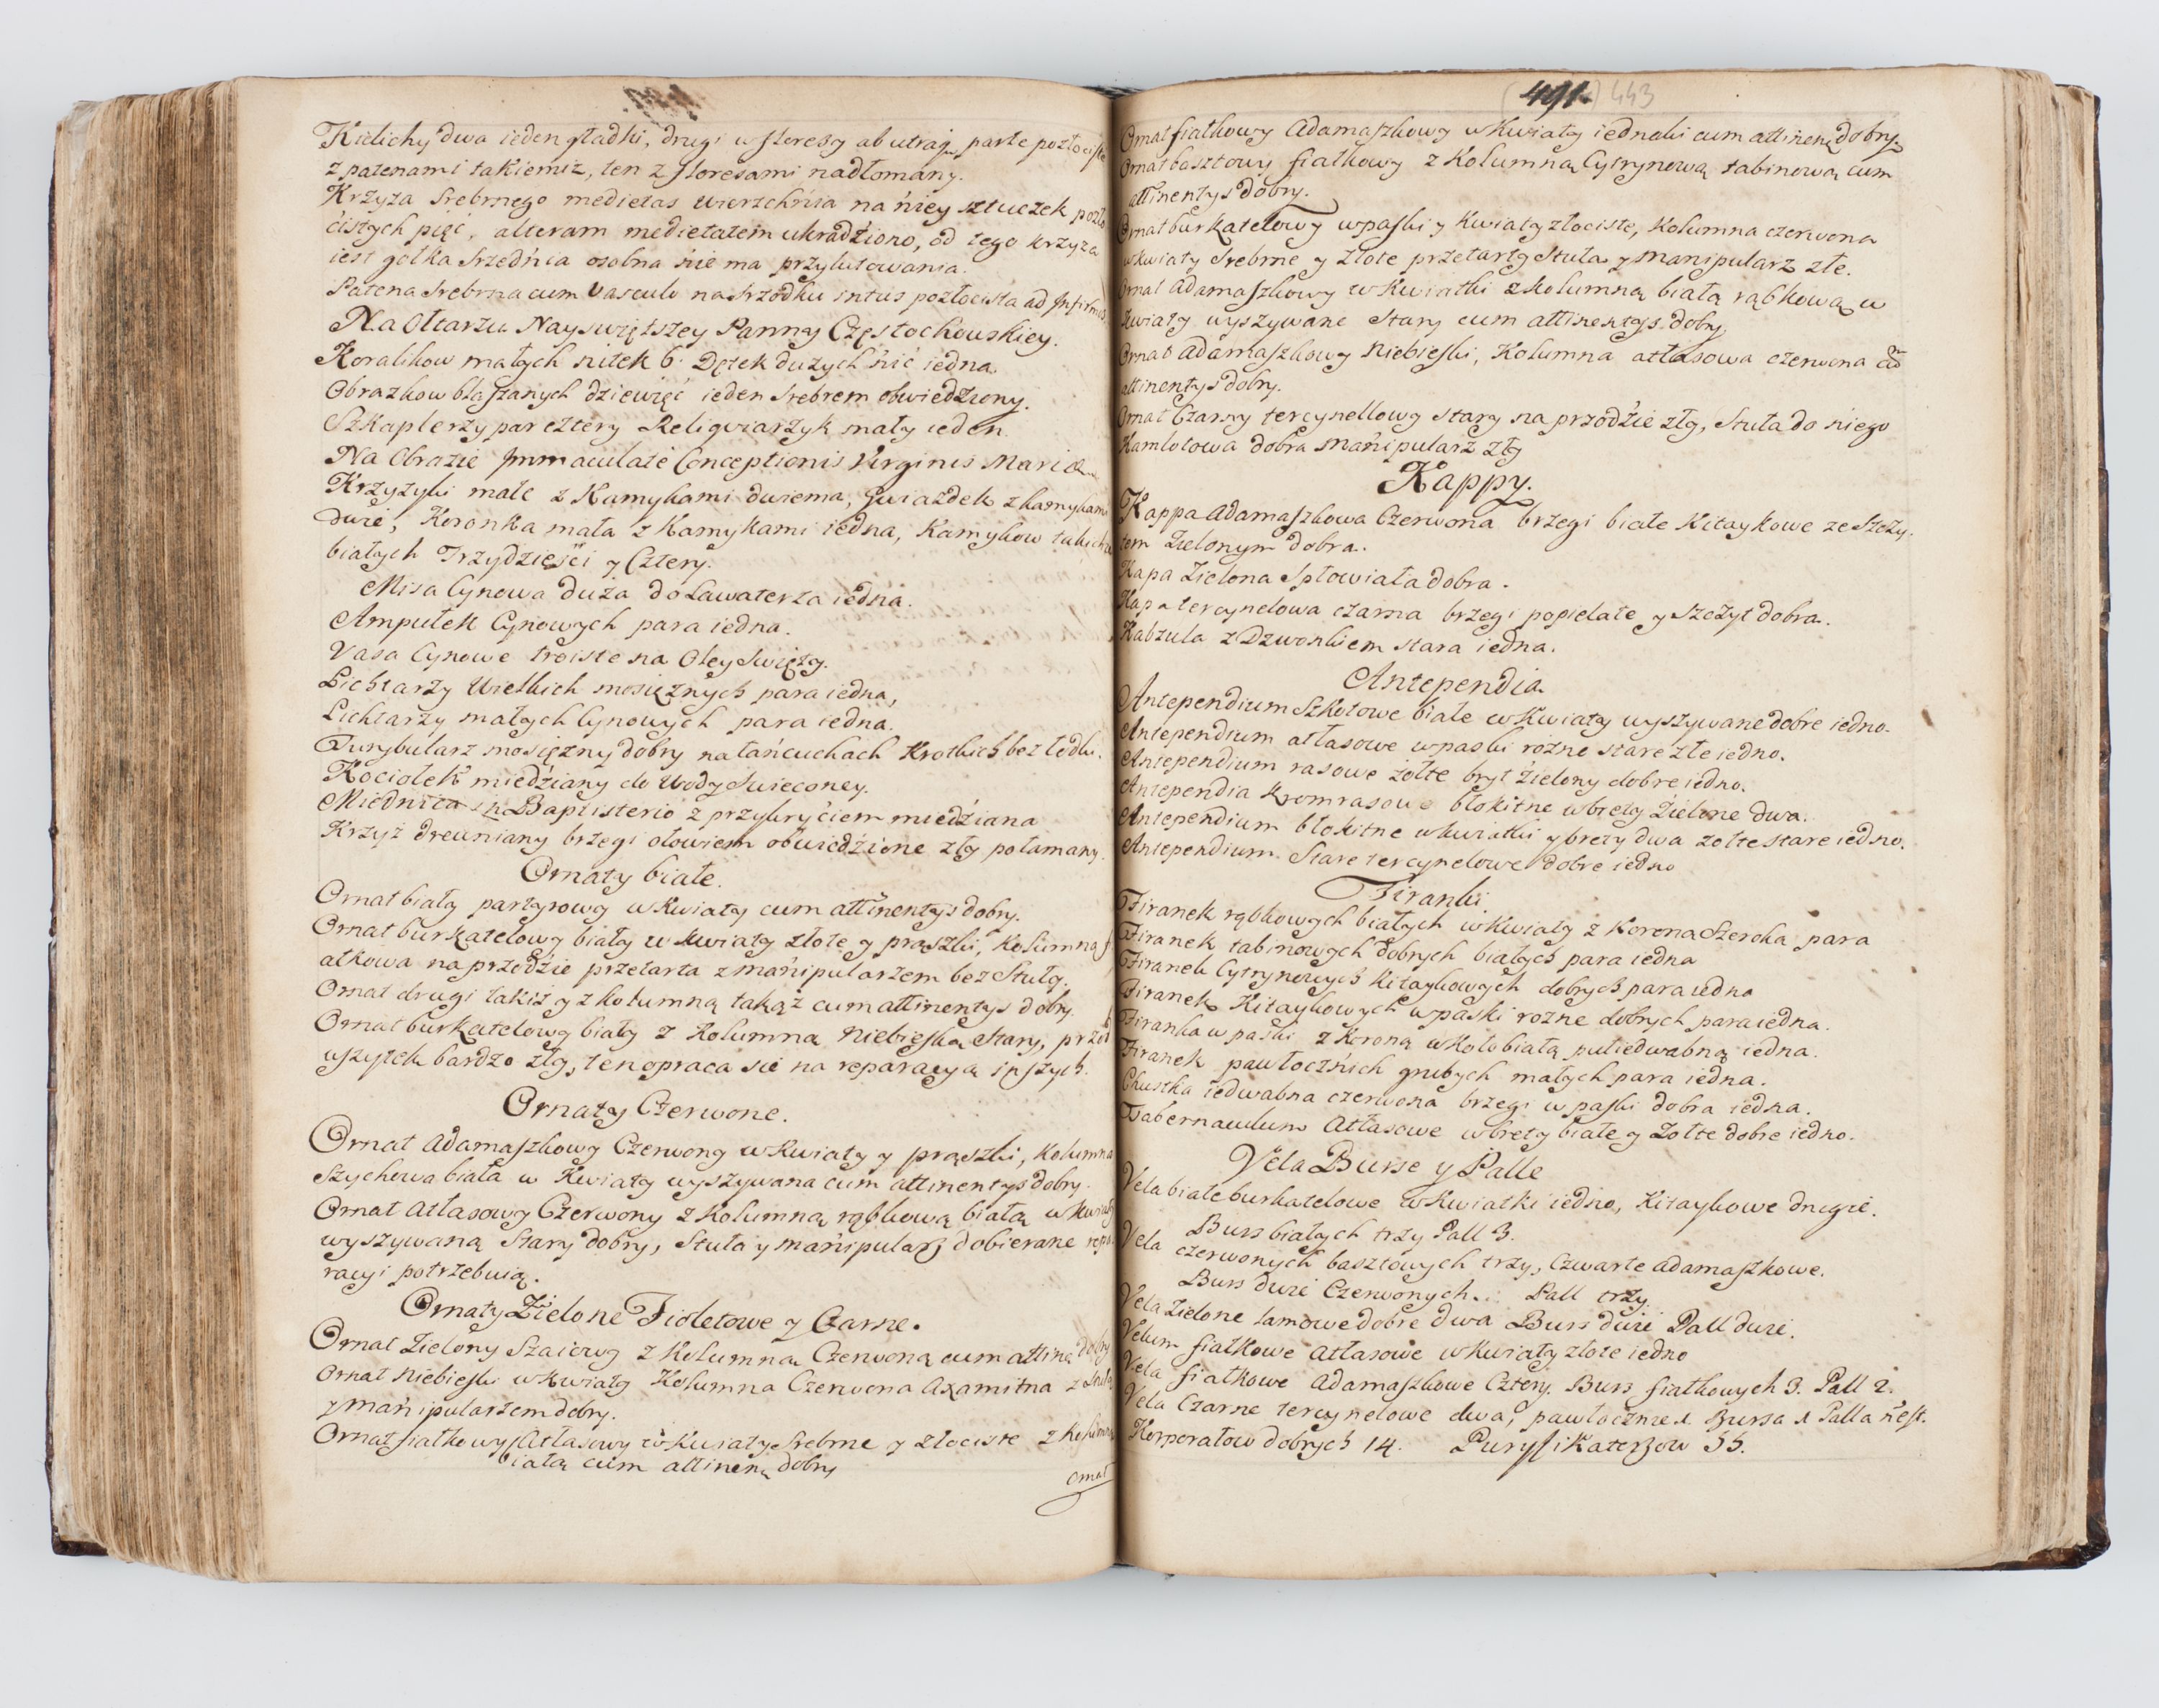 Kielichy dwa ieden gładki, drugi w floresy ab utraq parte pozłociste
z patenami takiemiz, ten z floresami nadłomany.
Krzyza Srebrnego medietas wierzchnia na niey sztuczek pozło
cistych pięć, alteram medietatem ukradziono, od tego krzyza
iest gałka Srzednia osobna nie ma przylutowania.
Patena Srebrna cum Vasculo na Srzodku intus pozłocista ad Infirmos
Na Ołtarzu Nayswiętszey Panny Częstochowskiey.
Koralikow małych nitek 6. Dętek duzych nić iedna.
Obrazkow blaszanych dziewięć ieden Srebrem obwiedziony.
Szkaplerzy par cztery Religviarzyk mały ieden
Na Obrazie Immaculatæ Conceptionis Virginis Mariæ
Krzyzyki małe z Kamykami dwiema, Gwiazdek z kamykami
dwie, Koronka mała z Kamykami iedna, Kamykow takichze
białych Trzydzieści y Cztery.
Misa Cynowa duża do Lawaterza iedna.
Ampułek Cynowych para iedna.
Vasa Cynowe troiste na Oley Swięty.
Lichtarzy Wielkich mosięznych para iedna,
Lichtarzy małych Cynowych para iedna.
Turybularz mosięzny dobry na łańcuchach Krotkich bez łodki.
Kociołek miedziany do Wody Swięconey.
Miednica in Baptisterio z przykryciem miedziana
Krzyż drewniany brzegi ołowiem obwiedzione zły połamany.
Ornaty białe.
Ornat biały partyrowy w Kwiaty cum attinentys dobry.
Ornat burkatelowy biały w kwiaty złote y prąszki, Kolumna fi
ałkowa na przodzie przetarta z manipularzem bez Stuły.
Ornat drugi takiż y z kolumną takąż cum attinentys dobry.
Ornat burkatelowy biały z Kolumna Niebieską Stary, przod
wszytek bardzo zły, ten opraca się na reparacyą inszych.
Ornaty Czerwone.
Ornat Adamaszkowy Czerwony w Kwiaty y prąszki, Kolumna
Szychowa biała w Kwiaty wyszywana cum attinentys dobry.
Ornat Atłasowy Czerwony z Kolumną rąbkową białą w kwiaty
wyszywaną Stary dobry, Stuła y manipularz dobierane repa
racyi potrzebuią.
Ornaty Zielone Fioletowe y Czarne.
Ornat Zielony Szaiowy z Kolumną Czerwoną cum attinen dobry
Ornat Niebieski w Kwiaty Kolumna Czerwona Axamitna z Stułą
y manipularzem dobry.
Ornat fiałkowy Atłasowy w Kwiaty Srebrne y złociste z Kolumną
białą cum attinen dobry
Ornat
491. 443
Ornat fiałkowy Adamaszkowy w Kwiaty iednaki cum attinen dobry.
Ornat basztowy fiałkowy z Kolumną Cytrynową tabinową cum
attinentys dobry.
Ornat burkatelowy w paski y Kwiaty złociste, Kolumna czerwona
w kwiaty Srebrne y złote przetarty Stuła y manipularz złe.
Ornat Adamaszkowy w Kwiatki z kolumną białą rąbkową w
kwiaty wyszywane Stary cum attinentys dobry.
Ornat Adamaszkowy Niebieski, Kolumna atłasowa czerwona cu
attinentys dobry.
Ornat Czarny tercynellowy Stary na przodzie zły, Stuła do niego
Kamlotowa dobra Manipularz zły
Kappy.
Kappa Adamaszkowa Czerwona brzegi białe Kitaykowe ze Szczy
tem Zielonym dobra.
Kapa Zielona Spłowiała dobra.
Kapa tercynelowa czarna brzegi popielate y Szczyt dobra.
Kabzula z Dzwonkiem stara iedna.
Antependia
Antependium Szkotowe białe w Kwiaty wyszywane dobre iedno.
Antependium atłasowe w paski rożne stare złe iedno.
Antependium rasowe żółte bryt zielony dobre iedno.
Antependia Kromrasowe błokitne w brety Zielone dwa.
Antependium błokitne w kwiatki y brety dwa zołte stare iedno.
Antependium Stare tercynelowe dobre iedno
Firanki
Firanek rąbkowych białych w Kwiaty z Korona Szeroka para
Firanek tabinowych dobrych białych para iedna
Firanek Cytrynowych Kitaykowych dobrych para iedna
Firanek Kitaykowych w paski rozne dobrych para iedna.
Firanka w paski z Koroną w Koło białą pułiedwabną iedna.
Firanek pawłocznich grubych małych para iedna.
Chustka iedwabna czerwona brzegi w paski dobra iedna.
Tabernaculum Atłasowe w brety białe y Zołte dobre iedno.
Vela Bursę y Palle
Vela białe burkatelowe w Kwiatki iedno, Kitaykowe drugie.
Burs białych trzy Pall 3.
Vela czerwonych basztowych trzy, Czwarte adamaszkowe.
Burs dwie Czerwonych. Pall trzy
Vela Zielone lamowe dobre dwa Burs dwie Pall dwie.
Velum fiałkowe Atłasowe w Kwiaty złote iedno
Vela fiałkowe Adamaszkowe Cztery. Burs fiałkowych 3. Pall 2.
Vela Czarne tercynelowe dwa, pawłocznie 1. Bursa 1 Palla n est.
Korporałow dobrych 14. Puryfikaterzow 35.